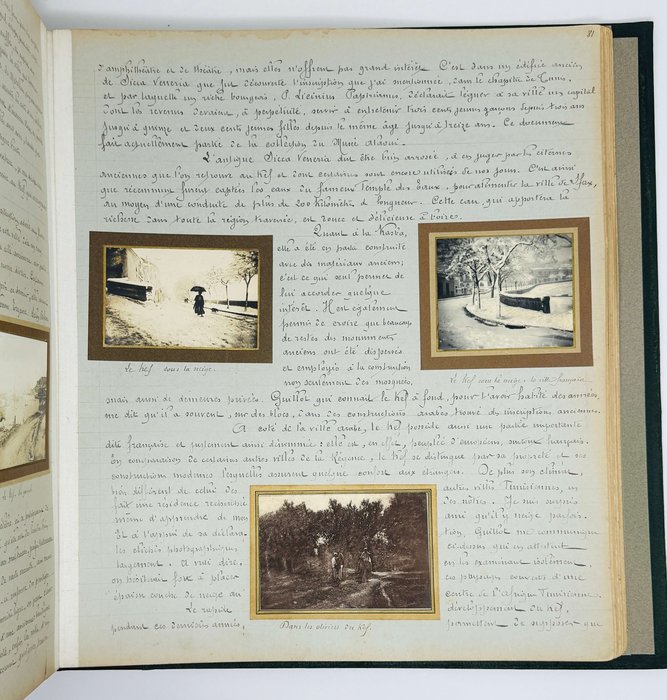 81
d'amphithéâtre et de théâtre, mais elles n'offrent pas grand intérêt. C'est dans un édifice ancien
de Sicca Veneria que fut découverte l'inscription que j'ai mentionnée, dans le chapitre de Tunis,
et par laquelle un riche bourgeois, P. Licinius Papirianus, déclarait léguer à sa ville un capital
dont les revenus devaient, à perpétuité, servir à entretenir trois cents jeunes garçons depuis trois ans
jusqu'à quinze et deux cents jeunes filles depuis le même âge jusqu'à treize ans. Ce document
fait actuellement partie de la collection du Musée Alaoui.
L'antique Sicca Veneria dut être bien arrosée, à en juger par les citernes
anciennes que l'on retrouve au Kef et dont certaines sont encore utilisées de nos jours. C'est ainsi
que récemment furent captées les eaux du fameux Temple des Eaux, pour alimenter la ville de Sfax,
au moyen d'une conduite de plus de 200 kilomèt. de longueur. Cette eau, qui apportera la
richesse dans toute la région traversée, est douce et délicieuse à boire.
Quant à la Kasba,
elle a été en partie construite
avec des matériaux anciens;
c'est ce qui seul permet de
lui accorder quelque
intérêt. Il est également
permis de croire que beaucoup
de restes des monuments
anciens ont été dispersés
et employés à la construction
non seulement des mosquées,
Le Kef sous la neige.
Le Kef sous la neige, la ville française
mais aussi de demeures privées. Guillot qui connait le Kef à fond, pour l'avoir habité des années,
me dit qu'il a souvent, sur des blocs, dans des constructions arabes trouvé des inscriptions anciennes.
A coté de la ville arabe, le Kef possède aussi une partie importante
dite française et justement ainsi dénommée: elle est, en effet, peuplée d'européens, surtout français.
En comparaison de certaines autres villes de la Régence, le Kef se distingue par sa propreté et ses
constructions modernes lesquelles assurent quelque confort aux étrangers. De plus son climat,
bien différent de celui des autres villes Tunisiennes, en
fait une résidence recherchée des nôtres. Je suis surpris
même d'apprendre de mon ami qu'il y neige parfois.
Et à l'appui de sa déclaration, Guillot me communique
les clichés photographiques ci-dessus qui en attestent
largement. A vrai dire, en les examinant isolément,
on hésiterait fort à placer ces paysages couverts d'une
épaisse couche de neige au centre de l'Afrique Tunisienne.
Le rapide développement du Kef,
pendant ces dernières années, permettent de supposer que
Dans les oliviers du Kef.